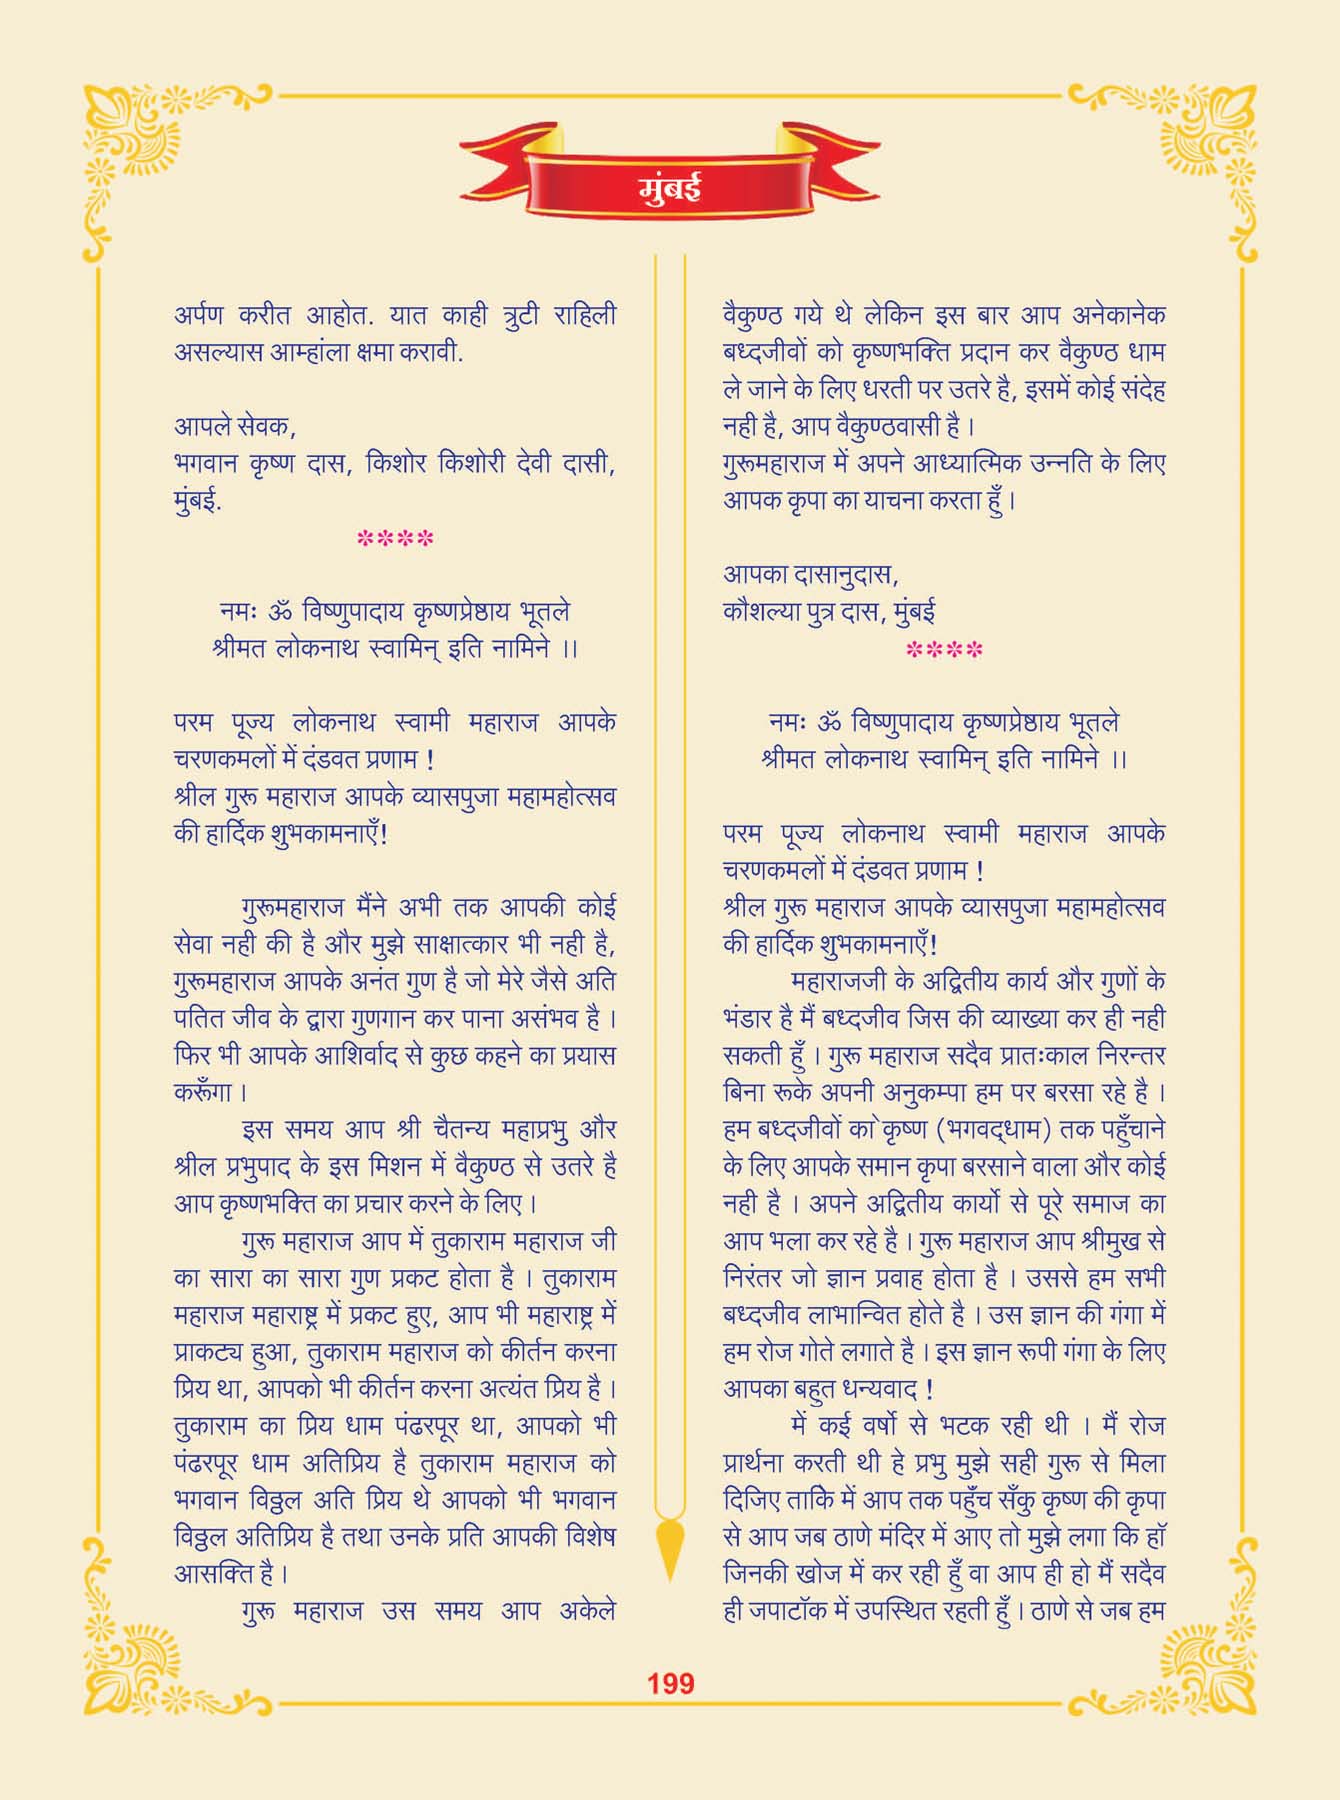 मुंबई
अर्पण करीत आहोत. यात काही त्रुटी राहिली
असल्यास आम्हांला क्षमा करावी.
आपले सेवक,
भगवान कृष्ण दास, किशोर किशोरी देवी दासी,
मुंबई.
****
नमः ॐ विष्णुपादाय कृष्णप्रेष्ठाय भूतले
श्रीमत लोकनाथ स्वामिन् इति नामिने ।।
परम पूज्य लोकनाथ स्वामी महाराज आपके
चरणकमलों में दंडवत प्रणाम !
श्रील गुरू महाराज आपके व्यासपुजा महामहोत्सव
की हार्दिक शुभकामनाएँ!
गुरूमहाराज मैंने अभी तक आपकी कोई
सेवा नही की है और मुझे साक्षात्कार भी नही है,
गुरूमहाराज आपके अनंत गुण है जो मेरे जैसे अति
पतित जीव के द्वारा गुणगान कर पाना असंभव है ।
फिर भी आपके आशिर्वाद से कुछ कहने का प्रयास
करूँगा ।
इस समय आप श्री चैतन्य महाप्रभु और
श्रील प्रभुपाद के इस मिशन में वैकुण्ठ से उतरे है
आप कृष्णभक्ति का प्रचार करने के लिए ।
गुरू महाराज आप में तुकाराम महाराज जी
का सारा का सारा गुण प्रकट होता है । तुकाराम
महाराज महाराष्ट्र में प्रकट हुए, आप भी महाराष्ट्र में
प्राकट्य हुआ, तुकाराम महाराज को कीर्तन करना
प्रिय था, आपको भी कीर्तन करना अत्यंत प्रिय है ।
तुकाराम का प्रिय धाम पंढरपूर था, आपको भी
पंढरपूर धाम अतिप्रिय है तुकाराम महाराज को
भगवान विठ्ठल अति प्रिय थे आपको भी भगवान
विठ्ठल अतिप्रिय है तथा उनके प्रति आपकी विशेष
आसक्ति है ।
गुरू महाराज उस समय आप अकेले
वैकुण्ठ गये थे लेकिन इस बार आप अनेकानेक
बध्दजीवों को कृष्णभक्ति प्रदान कर वैकुण्ठ धाम
ले जाने के लिए धरती पर उतरे है, इसमें कोई संदेह
नही है, आप वैकुण्ठवासी है ।
गुरूमहाराज में अपने आध्यात्मिक उन्नति के लिए
आपक कृपा का याचना करता हुँ ।
आपका दासानुदास,
कौशल्या पुत्र दास, मुंबई
****
नमः ॐ विष्णुपादाय कृष्णप्रेष्ठाय भूतले
श्रीमत लोकनाथ स्वामिन् इति नामिने ।।
परम पूज्य लोकनाथ स्वामी महाराज आपके
चरणकमलों में दंडवत प्रणाम !
श्रील गुरू महाराज आपके व्यासपुजा महामहोत्सव
की हार्दिक शुभकामनाएँ!
महाराजजी के अद्वितीय कार्य और गुणों के
भंडार है मैं बध्दजीव जिस की व्याख्या कर ही नही
सकती हुँ । गुरू महाराज सदैव प्रातःकाल निरन्तर
बिना रूके अपनी अनुकम्पा हम पर बरसा रहे है ।
हम बध्दजीवों काे कृष्ण (भगवद्धाम) तक पहुँचाने
के लिए आपके समान कृपा बरसाने वाला और कोई
नही है । अपने अद्वितीय कार्यो से पूरे समाज का
आप भला कर रहे है । गुरू महाराज आप श्रीमुख से
निरंतर जो ज्ञान प्रवाह होता है । उससे हम सभी
बध्दजीव लाभान्वित होते है । उस ज्ञान की गंगा में
हम रोज गोते लगाते है । इस ज्ञान रूपी गंगा के लिए
आपका बहुत धन्यवाद !
में कई वर्षो से भटक रही थी । मैं रोज
प्रार्थना करती थी हे प्रभु मुझे सही गुरू से मिला
दिजिए ताकि में आप तक पहुँच सँकु कृष्ण की कृपा
से आप जब ठाणे मंदिर में आए तो मुझे लगा कि हॉ
जिनकी खोज में कर रही हुँ वा आप ही हो मैं सदैव
ही जपाटॉक में उपस्थित रहती हुँ । ठाणे से जब हम
199